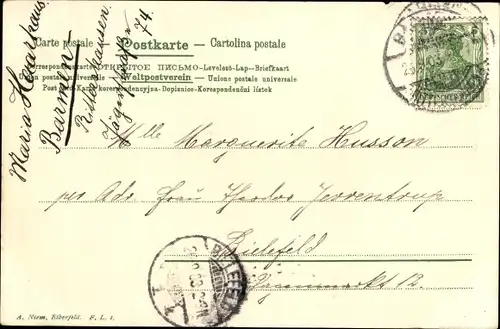 Carte postale — Postkarte — Cartolina postale
Korrespondenzkarte — ОТКРЫТОЕ ПИСЬМО — Levelező-Lap — Briefkaart
Union postale universelle — Weltpostverein — Unione postale universale
Post card — Karta korespondencyjna — Dopisnice — Korespondenční lístek
Maria
Barmen
Rittershausen
74
Mlle Marguerite Husson
per Adr. Frau Theodor Jerrentrup
Bielefeld
12.
BIELEFELD
A. Niem, Elberfeld. F. L. 1.